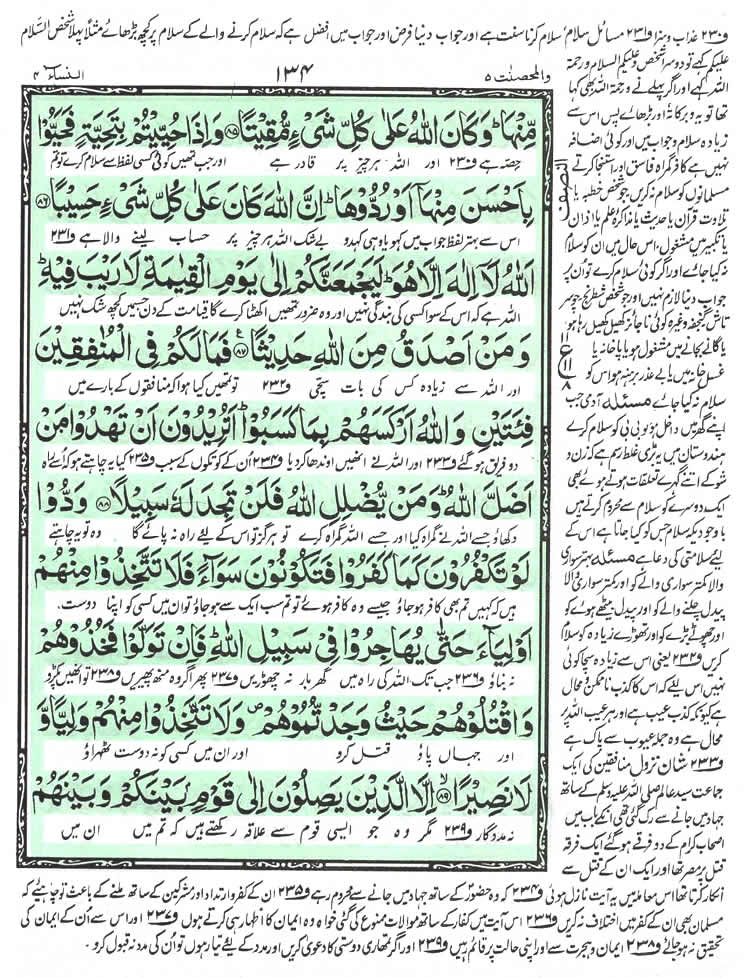 و۲۳۰ عذاب و سزا و۲۳۱ مسائل سلام سلام کرنا سنت ہے اور جواب دینا فرض اور جواب میں افضل ہے کہ سلام کرنے والے کے سلام پر کچھ بڑھائے مثلاً پہلا شخص السلام
علیکم کہے تو دوسرا شخص وعلیکم السلام ورحمۃ
اللہ کہے اور اگر پہلے نے ورحمۃ اللہ بھی کہا
تھا تو یہ وبرکاتہ اور بڑھائے پس اس سے
زیادہ سلام وجواب میں اور کوئی اضافہ
نہیں ہے کافر گمراہ فاسق اور استنجا کرتے
مسلمانوں کو سلام نہ کریں جو شخص خطبہ یا
تلاوت قرآن یا حدیث یا مذاکرہ علم یا اذان
یا تکبیر میں مشغول ہو اس حال میں ان کو سلام
نہ کیا جائے اور اگر کوئی سلام کرے تو اُن پر
جواب دینا لازم نہیں اور جو شخص شطرنج چوسر
تاش گنجفہ وغیرہ کوئی ناجائز کھیل کھیل رہا ہو
یا گانے بجانے میں مشغول ہو یا پاخانہ یا
غسل خانہ میں یا بے عذر برہنہ ہو اس کو
سلام نہ کیا جائے مسئلہ آدمی جب
اپنے گھر میں داخل ہو تو بی بی کو سلام کرے
ہندوستان میں یہ بڑی غلط رسم ہے کہ زن و
شو کے اتنے گہرے تعلقات ہوتے ہوئے بھی
ایک دوسرے کو سلام سے محروم کرتے ہیں
باوجودیکہ سلام جس کو کیا جاتا ہے اس کے
لیئے سلامتی کی دعا ہے مسئلہ بہتر سواری
والا کمتر سواری والے کو اور کمتر سواری والا
پیدل چلنے والے کو اور پیدل بیٹھے ہوئے کو
اور چھوٹے بڑے کو اور تھوڑے زیادہ کو سلام
کریں و۲۳۲ یعنی اس سے زیادہ سچا کوئی
نہیں اس لیئے کہ اس کا کذب ناممکن ومحال
ہے کیونکہ کذب عیب ہے اور ہر عیب اللہ پر
محال ہے وہ جملہ عیوب سے پاک ہے
و۲۳۳ شان نزول منافقین کی ایک
جماعت سید عالم صلی اللہ علیہ وسلم کے ساتھ
جہاد میں جانے سے رک گئی تھی انکے باب میں
اصحاب کرام کے دو فرقے ہوگئے ایک فرقہ
قتل پر مصر تھا اور ایک ان کے قتل سے
والمحصنت ۵
۱۳۴
النساء ۴
مِّنْهَا ؕ وَكَانَ اللّٰهُ عَلٰى كُلِّ شَىْءٍ مُّقِيْتًا ﴿۸۵﴾ وَاِذَا حُيِّيْتُمْ بِتَحِيَّةٍ فَحَيُّوْا
حصہ ہے و۲۳۰ اور اللہ ہر چیز پر قادر ہے اور جب تمھیں کوئی کسی لفظ سے سلام کرے تو تم
بِاَحْسَنَ مِنْهَاۤ اَوْ رُدُّوْهَا ؕ اِنَّ اللّٰهَ كَانَ عَلٰى كُلِّ شَىْءٍ حَسِيْبًا ﴿۸۶﴾
اس سے بہتر لفظ جواب میں کہو یا وہی کہدو بے شک اللہ ہر چیز پر حساب لینے والا ہے و۲۳۱
اَللّٰهُ لَاۤ اِلٰهَ اِلَّا هُوَ ؕ لَيَجْمَعَنَّكُمْ اِلٰى يَوْمِ الْقِيٰمَةِ لَا رَيْبَ فِيْهِ ؕ
اللہ ہے کہ اس کے سوا کسی کی بندگی نہیں اور وہ ضرور تمھیں اکھٹا کرے گا قیامت کے دن جس میں کچھ شک نہیں
وَمَنْ اَصْدَقُ مِنَ اللّٰهِ حَدِيْثًا ﴿۸۷﴾ فَمَا لَكُمْ فِى الْمُنٰفِقِيْنَ
اور اللہ سے زیادہ کس کی بات سچی و۲۳۲ تو تمھیں کیا ہوا کہ منافقوں کے بارے میں
فِئَتَيْنِ وَاللّٰهُ اَرْكَسَهُمْ بِمَا كَسَبُوْا ؕ اَتُرِيْدُوْنَ اَنْ تَهْدُوْا مَنْ
دو فریق ہوگئے و۲۳۳ اور اللہ نے انھیں اوندھا کردیا و۲۳۴ اُن کے کوتکوں کے سبب و۲۳۵ کیا یہ چاہتے ہو کہ اُسے راہ
اَضَلَّ اللّٰهُ ؕ وَمَنْ يُّضْلِلِ اللّٰهُ فَلَنْ تَجِدَ لَهٗ سَبِيْلًا ﴿۸۸﴾ وَدُّوْا
دکھاؤ جسے اللہ نے گمراہ کیا اور جسے اللہ گمراہ کرے تو ہرگز تو اس کے لیئے راہ نہ پائے گا وہ تو یہ چاہتے
لَوْ تَكْفُرُوْنَ كَمَا كَفَرُوْا فَتَكُوْنُوْنَ سَوَآءً فَلَا تَتَّخِذُوْا مِنْهُمْ
ہیں کہ کہیں تم بھی کافر ہوجاؤ جیسے وہ کافر ہوئے تو تم سب ایک سے ہوجاؤ تو ان میں کسی کو اپنا دوست
اَوْلِيَآءَ حَتّٰى يُهَاجِرُوْا فِىْ سَبِيْلِ اللّٰهِ ؕ فَاِنْ تَوَلَّوْا فَخُذُوْهُمْ
نہ بناؤ و۲۳۶ جب تک اللہ کی راہ میں گھر بار نہ چھوڑیں و۲۳۷ پھر اگر وہ منھ پھیریں و۲۳۸ تو انھیں پکڑو
وَاقْتُلُوْهُمْ حَيْثُ وَجَدْتُّمُوْهُمْ ۪ وَلَا تَتَّخِذُوْا مِنْهُمْ وَلِيًّا وَّ
اور جہاں پاؤ قتل کرو اور ان میں کسی کو نہ دوست ٹھہراؤ
لَا نَصِيْرًا ﴿۸۹﴾ اِلَّا الَّذِيْنَ يَصِلُوْنَ اِلٰى قَوْمٍۭ بَيْنَكُمْ وَبَيْنَهُمْ
نہ مددگار و۲۳۹ مگر وہ جو ایسی قوم سے علاقہ رکھتے ہیں کہ تم میں ان میں
النصف
۱۱
ع
۱۱
۸
انکار کرتا تھا اس معاملہ میں یہ آیت نازل ہوئی و۲۳۴ کہ وہ حضور کے ساتھ جہاد میں جانے سے محروم رہے و۲۳۵ ان کے کفر وارتداد اور مشرکین کے ساتھ ملنے کے باعث تو چاہیئے کہ
مسلمان بھی ان کے کفر میں اختلاف نہ کریں و۲۳۶ اس آیت میں کفار کے ساتھ موالات ممنوع کی گئی خواہ وہ ایمان کا اظہار ہی کرتے ہوں و۲۳۷ اور اس سے اُن کے ایمان کی
تحقیق نہ ہوجائے و۲۳۸ ایمان وہجرت سے اور اپنی حالت پر قائم رہیں و۲۳۹ اور اگر تمھاری دوستی کا دعویٰ کریں اور مدد کے لیئے تیار ہوں تو اُن کی مدد نہ قبول کرو۔